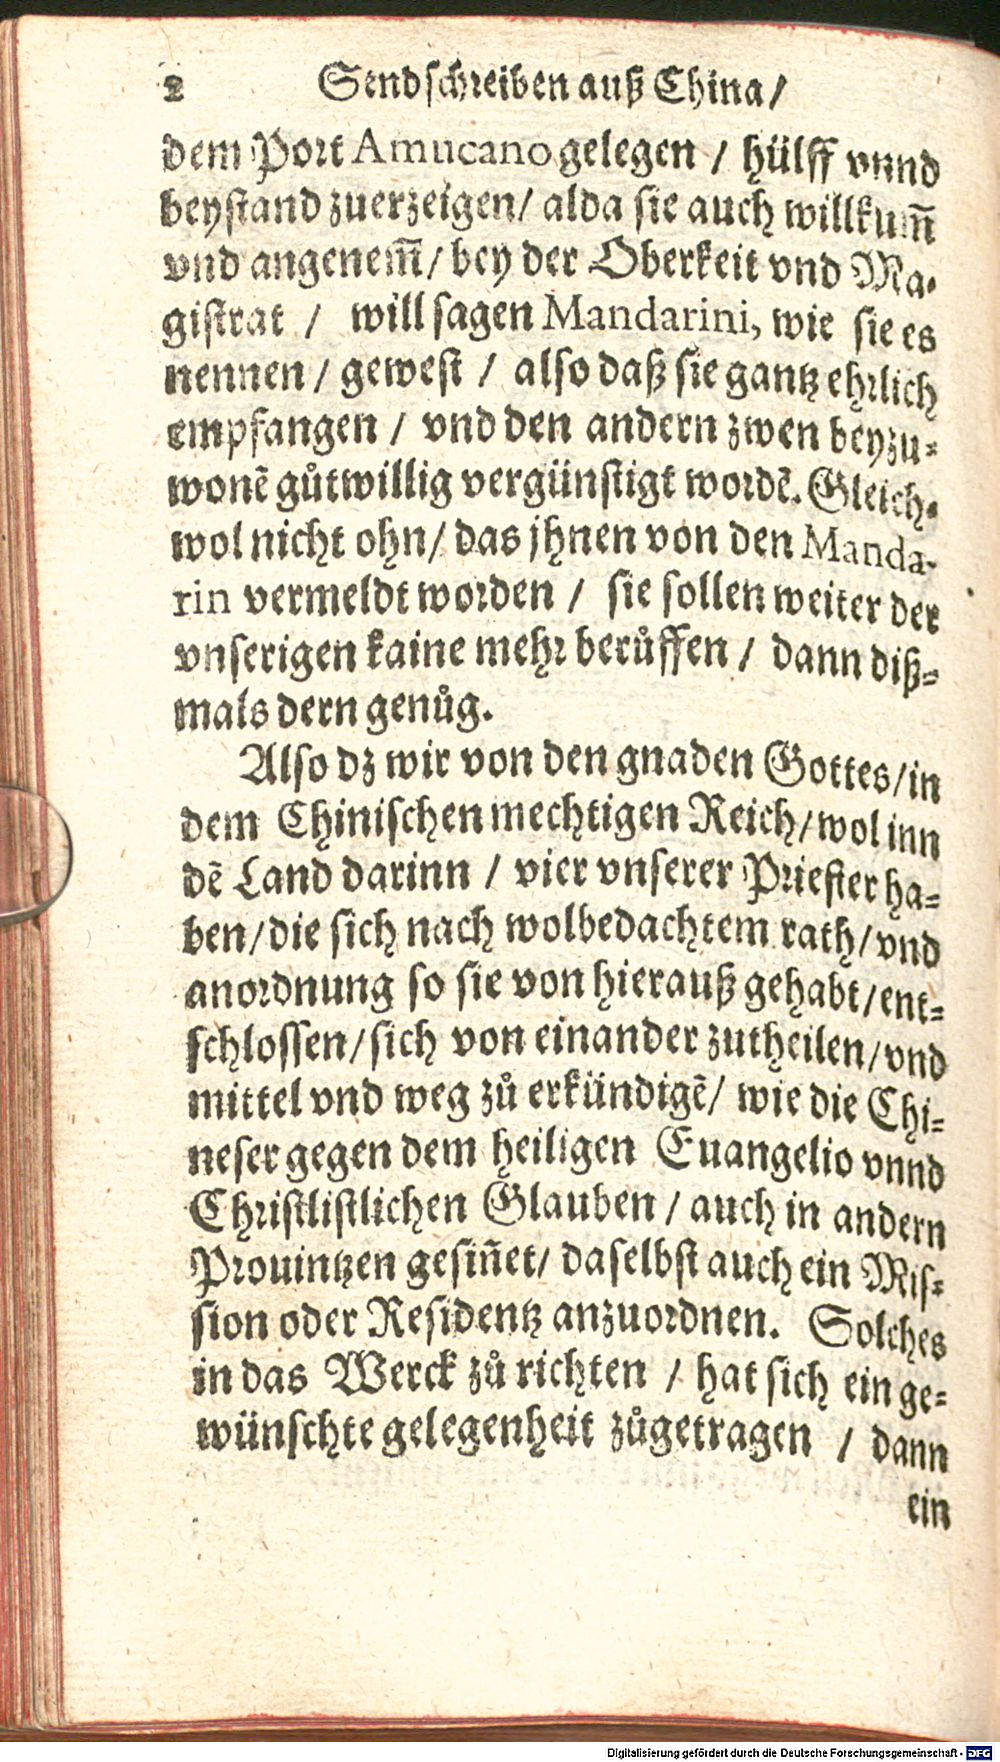 2 Sendschreiben auß China/
dem Port Amucano gelegen / hülff vnnd
beystand zuerzeigen/ alda sie auch willkum̃
vnd angenem̃/ bey der Oberkeit vnd Ma-
gistrat / will sagen Mandarini, wie sie es
nennen / gewest / also daß sie gantz ehrlich
empfangen / vnd den andern zwen beyzu-
wonẽ gůtwillig vergünstigt wordẽ. Gleich-
wol nicht ohn/ das jhnen von den Manda-
rin vermeldt worden / sie sollen weiter der
vnserigen kaine mehr berůffen / dann diß-
mals dern genůg.
Also dz wir von den gnaden Gottes/in
dem Chinischen mechtigen Reich/wol inn
dẽ Land darinn / vier vnserer Priester ha-
ben/die sich nach wolbedachtem rath/vnd
anordnung so sie von hierauß gehabt/ent-
schlossen/sich von einander zutheilen/vnd
mittel vnd weg zů erkündigẽ/ wie die Chi-
neser gegen dem heiligen Euangelio vnnd
Christlistlichen Glauben / auch in andern
Prouintzen gesiñet/ daselbst auch ein Mis-
sion oder Residentz anzuordnen. Solches
in das Werck zů richten / hat sich ein ge-
wünschte gelegenheit zůgetragen / dann
ein
Digitalisierung gefördert durch die Deutsche Forschungsgemeinschaft - DFG